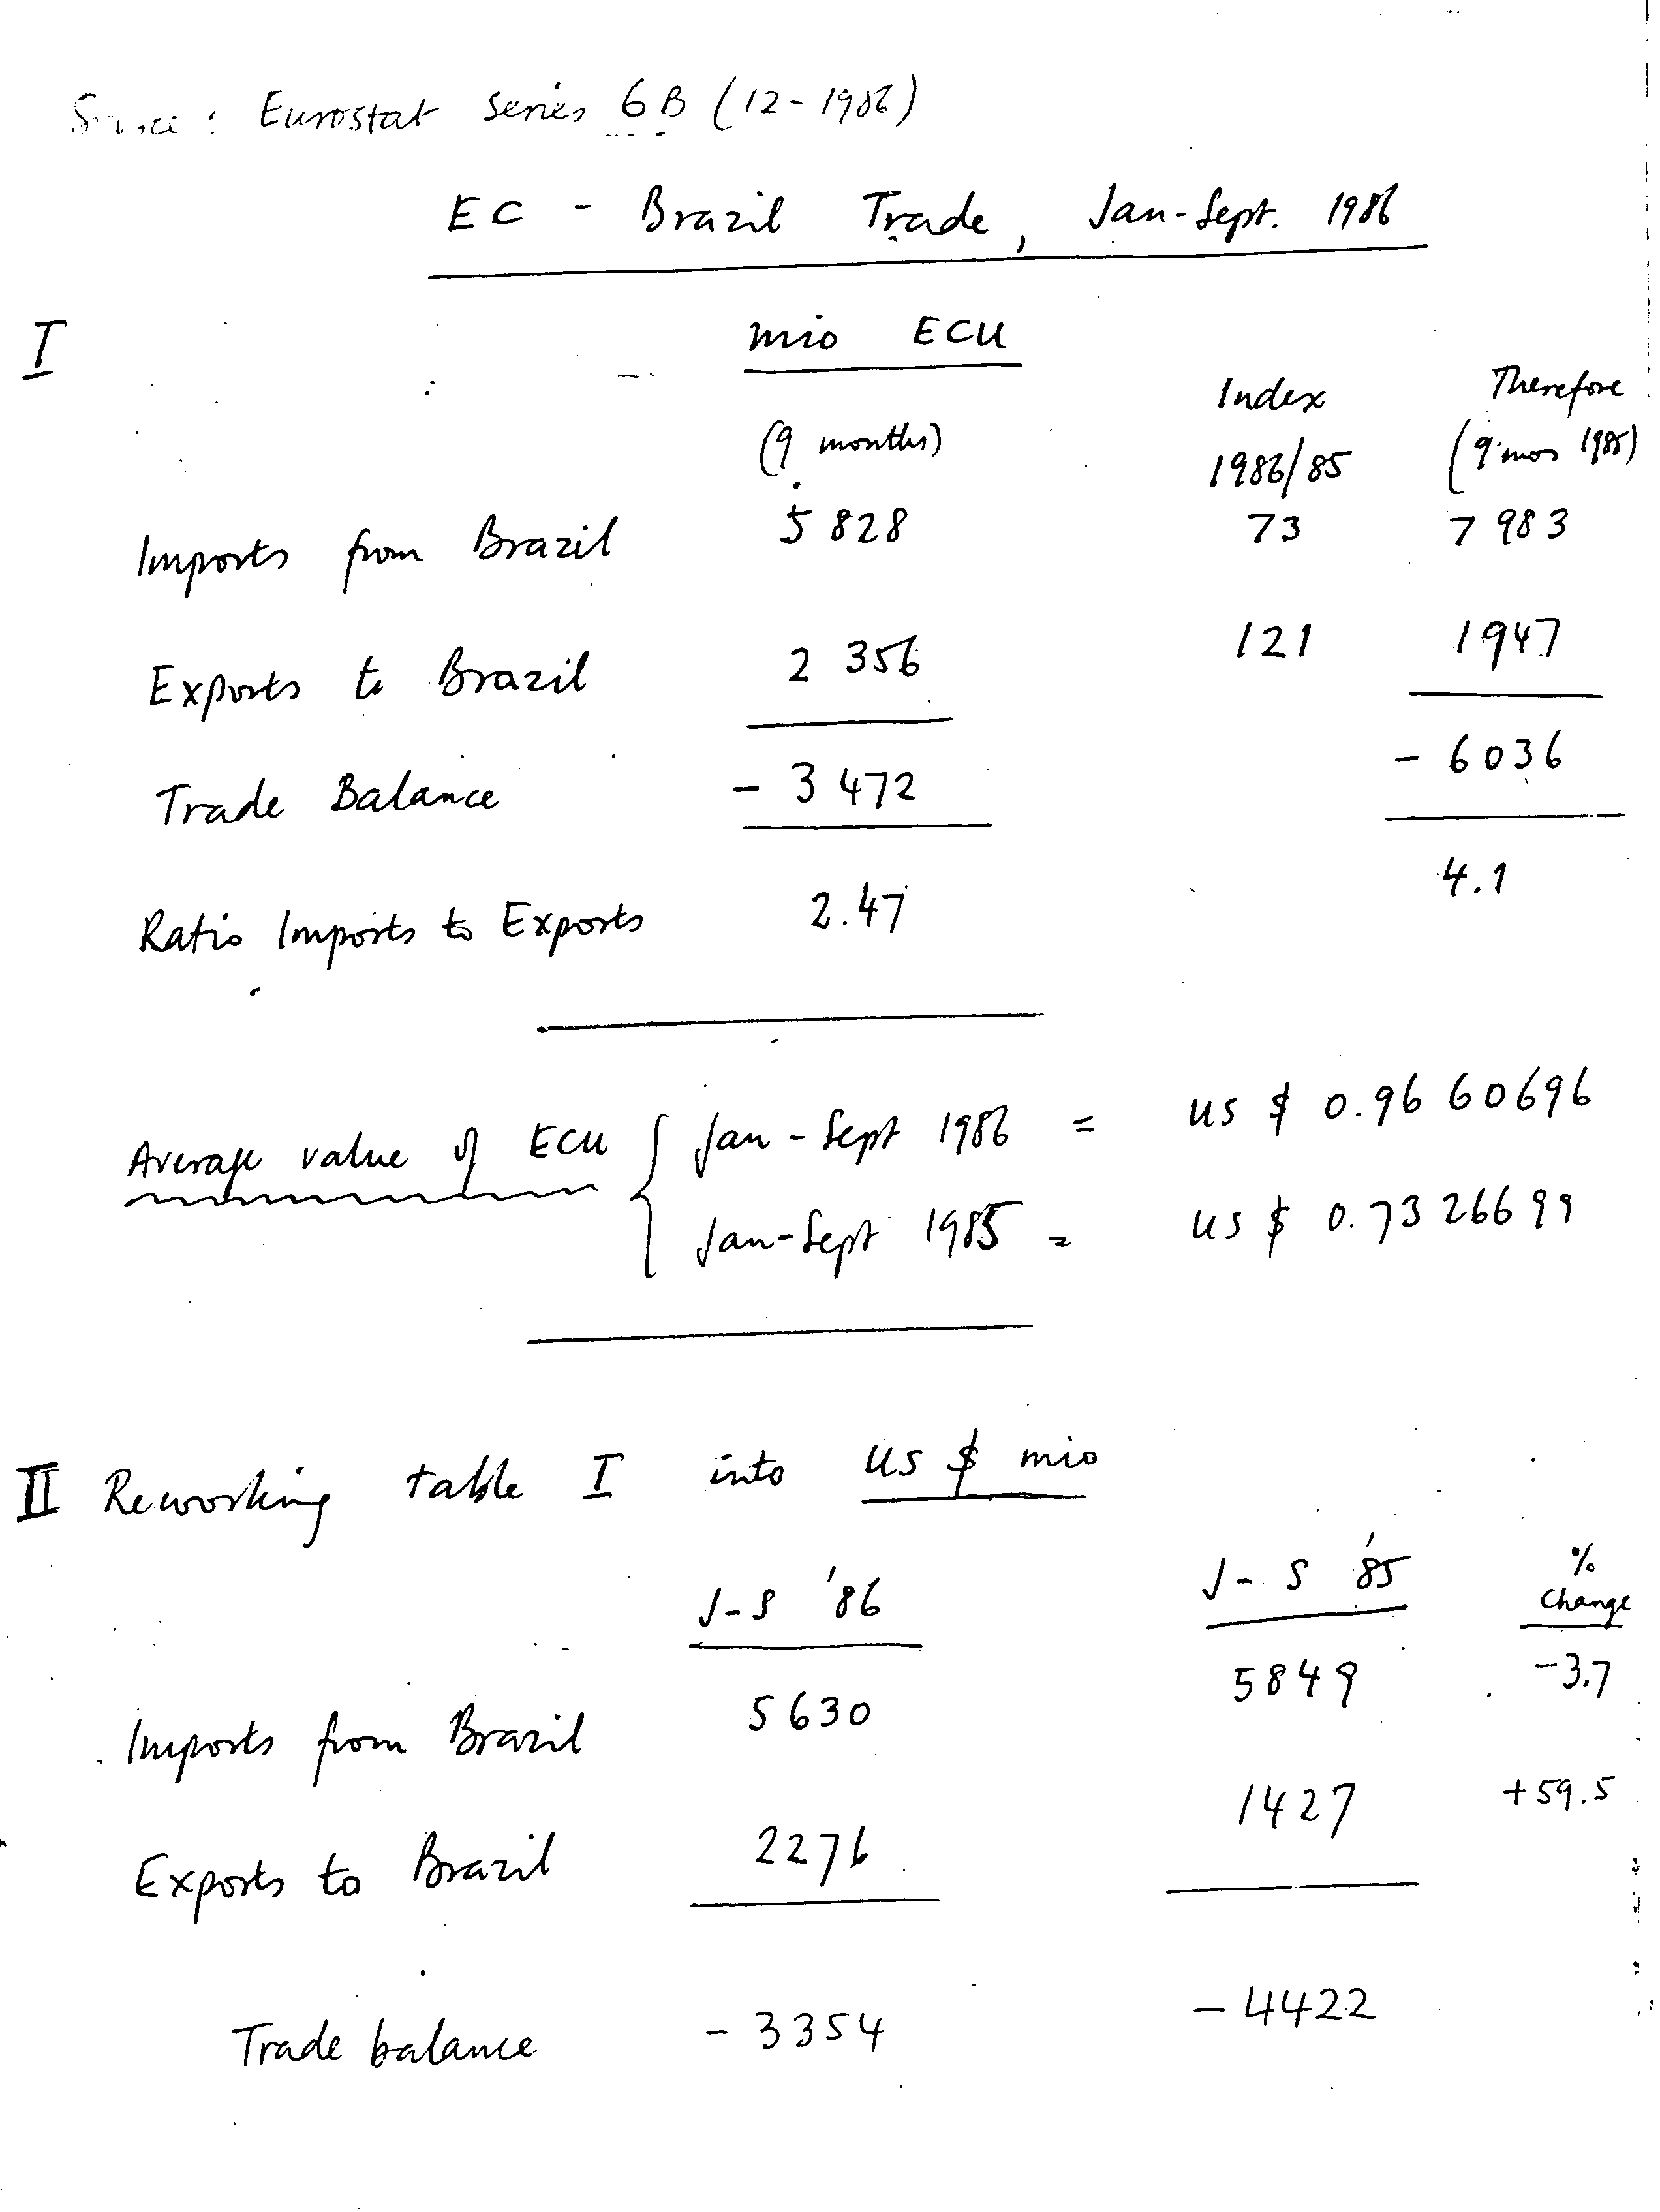 Source : Eurostat Series 6B (12-1986)
EC - Brazil Trade, Jan-Sept. 1986
I
mio ECU
(9 months) Index 1986/85 Therefore (9 mos 1985)
Imports from Brazil 5 828 73 7 983
Exports to Brazil 2 356 121 1947
Trade Balance - 3 472 - 6036
Ratio Imports to Exports 2.47 4.1
Average value of ECU { Jan - Sept 1986 = US $ 0.96 60696
Jan-Sept 1985 = US $ 0.73 26699
II Reworking table I into US $ mio
J-S '86 J-S '85 % Change
Imports from Brazil 5630 5849 -3.7
Exports to Brazil 2276 1427 +59.5
Trade balance - 3354 - 4422